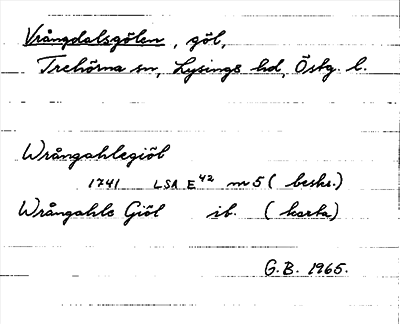 Vrångdalsgölen, göl,
Trehörna sn, Lysings hd, Östg. l.
Wrångahlegiöl
1741 LSA E42 m5 (beskr.)
Wrångahls Giöl ib. (karta)
G.B. 1965.